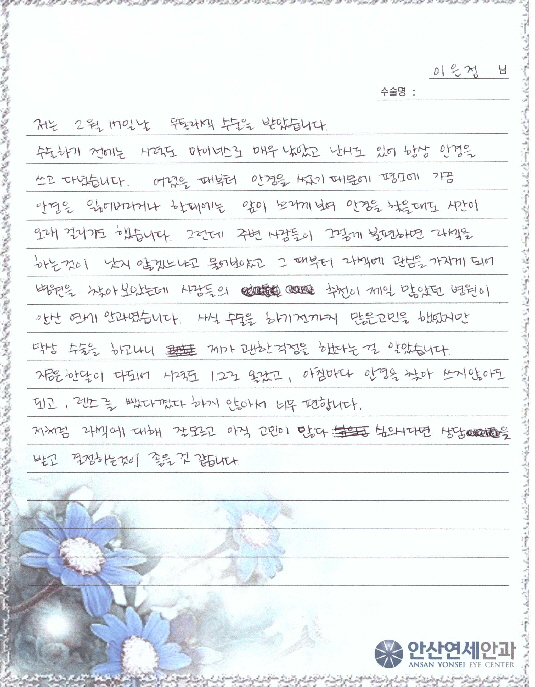 이은정 님
수술명 :
저는 2월 17일날 무통라섹 수술을 받았습니다.
수술하기 전에는 시력도 마이너스로 매우 낮았고 난시도 있어 항상 안경을
쓰고 다녔습니다. 어렸을 때부터 안경을 썼기 때문에 평소에 가끔
안경을 잃어버리거나 할때에는 앞이 흐리게보여 안경을 찾을때도 시간이
오래 걸리기도 했습니다. 그런데 주변 사람들이 그렇게 불편하면 라섹을
하는것이 낫지 않겠느냐고 물어보았고 그 때부터 라섹에 관심을 가지게 되어
병원을 찾아보았는데 사람들의 추천이 제일 많았던 병원이
안산 연세 안과였습니다. 사실 수술을 하기전까지 많은고민을 했었지만
막상 수술을 하고나니 제가 괜한걱정을 했다는걸 알았습니다.
지금은 한달이 다되어 시력도 1.2로 올랐고, 아침마다 안경을 찾아 쓰지않아도
되고, 렌즈를 뺐다꼈다 하지 않아서 너무 편합니다.
저처럼 라섹에 대해 잘모르고 아직 고민이 많다 싶으시다면 상담을
받고 결정하는것이 좋을것 같습니다
안산연세안과
ANSAN YONSEI EYE CENTER